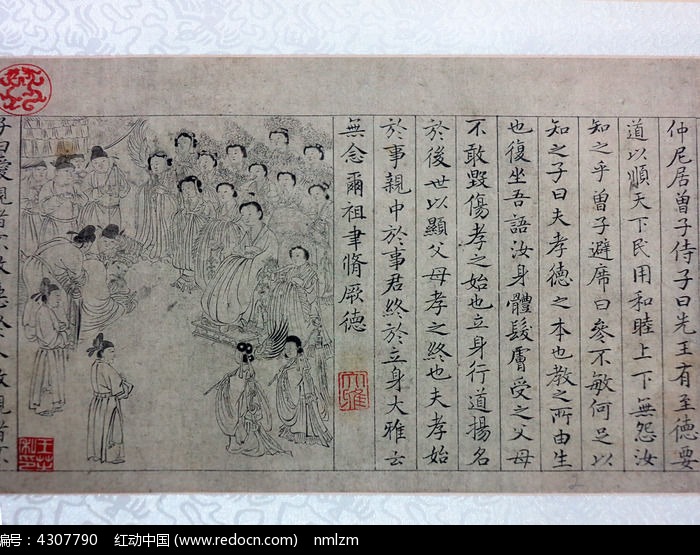 仲尼居曽子侍子曰先王有至德要
道以順天下民用和睦上下無怨汝
知之乎曽子避席曰參不敏何足以
知之子曰夫孝德之本也教之所由生
也復坐吾語汝身體髮膚受之父母
不敢毀傷孝之始也立身行道揚名
於後世以顯父母孝之終也夫孝始
於事親中於事君終於立身大雅云
無念爾祖聿脩厥德
子曰愛親者不敢惡於人敬親者不
大雅
编号：4307790 红动中国 (www.redocn.com) nmlzm